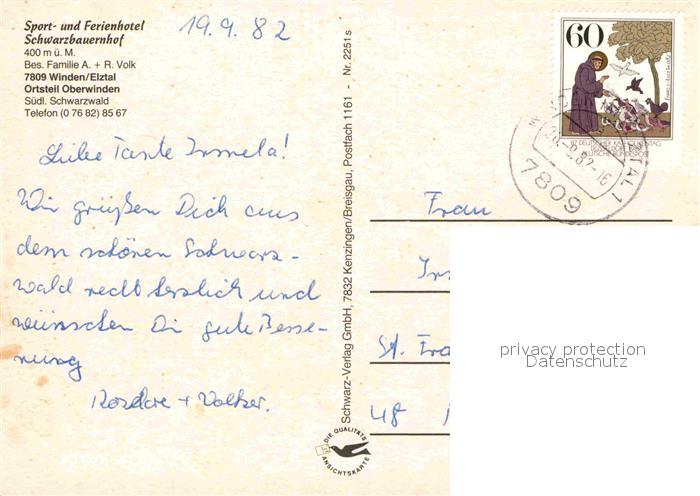 Sport- und Ferienhotel
Schwarzbauernhof
400 m ü. M.
Bes. Familie A. + R. Volk
7809 Winden/Elztal
Ortsteil Oberwinden
Südl. Schwarzwald
Telefon (0 76 82) 85 67
19.9.82
Liebe Tante Irmela!
Wir grüßen Dich aus
dem schönen Schwarz-
wald recht herzlich und
wünschen Dir gute Besse-
rung
+ Volker.
Schwarz-Verlag GmbH, 7832 Kenzingen/Breisgau, Postfach 1161 - Nr. 2251 s
DIE QUALITÄTS
ANSICHTSKARTE
60
DEUTSCHE BUNDESPOST
7809
Frau
St. Fra
48
privacy protection
Datenschutz